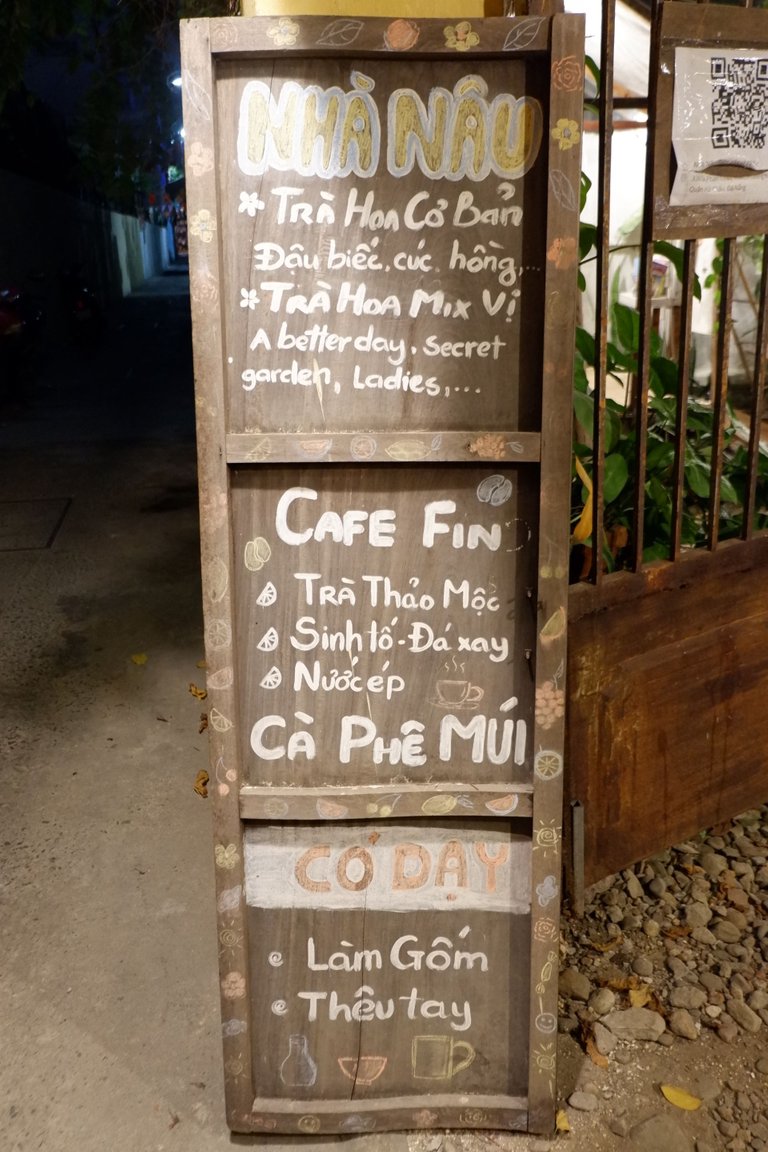 NHÀ NÂU
TRÀ HOA CƠ BẢN
Đậu biếc, cúc, hồng,...
TRÀ HOA MIX VỊ
A better day, secret
garden, Ladies,...
CAFE FIN
TRÀ THẢO MỘC
Sinh tố - Đá xay
Nước ép
CÀ PHÊ MÚI
CÓ DẠY
Làm Gốm
Thêu tay